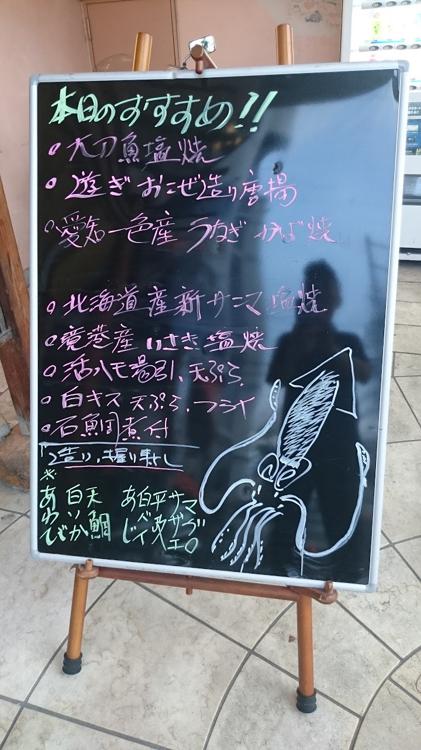 本日のすすめ!!
太刀魚塩焼
遊ぎおこぜ造り唐揚
愛知一色産 うなぎ かば焼
北海道産新サンマ塩焼
境港産いさき塩焼
活ハモ湯引、天ぷら
白キス 天ぷら、フライ
石鯛煮付
造り、握り寿し
※
マグロ
サザエ
平政
白バイ
あじ
天鯛
白いか
あわび